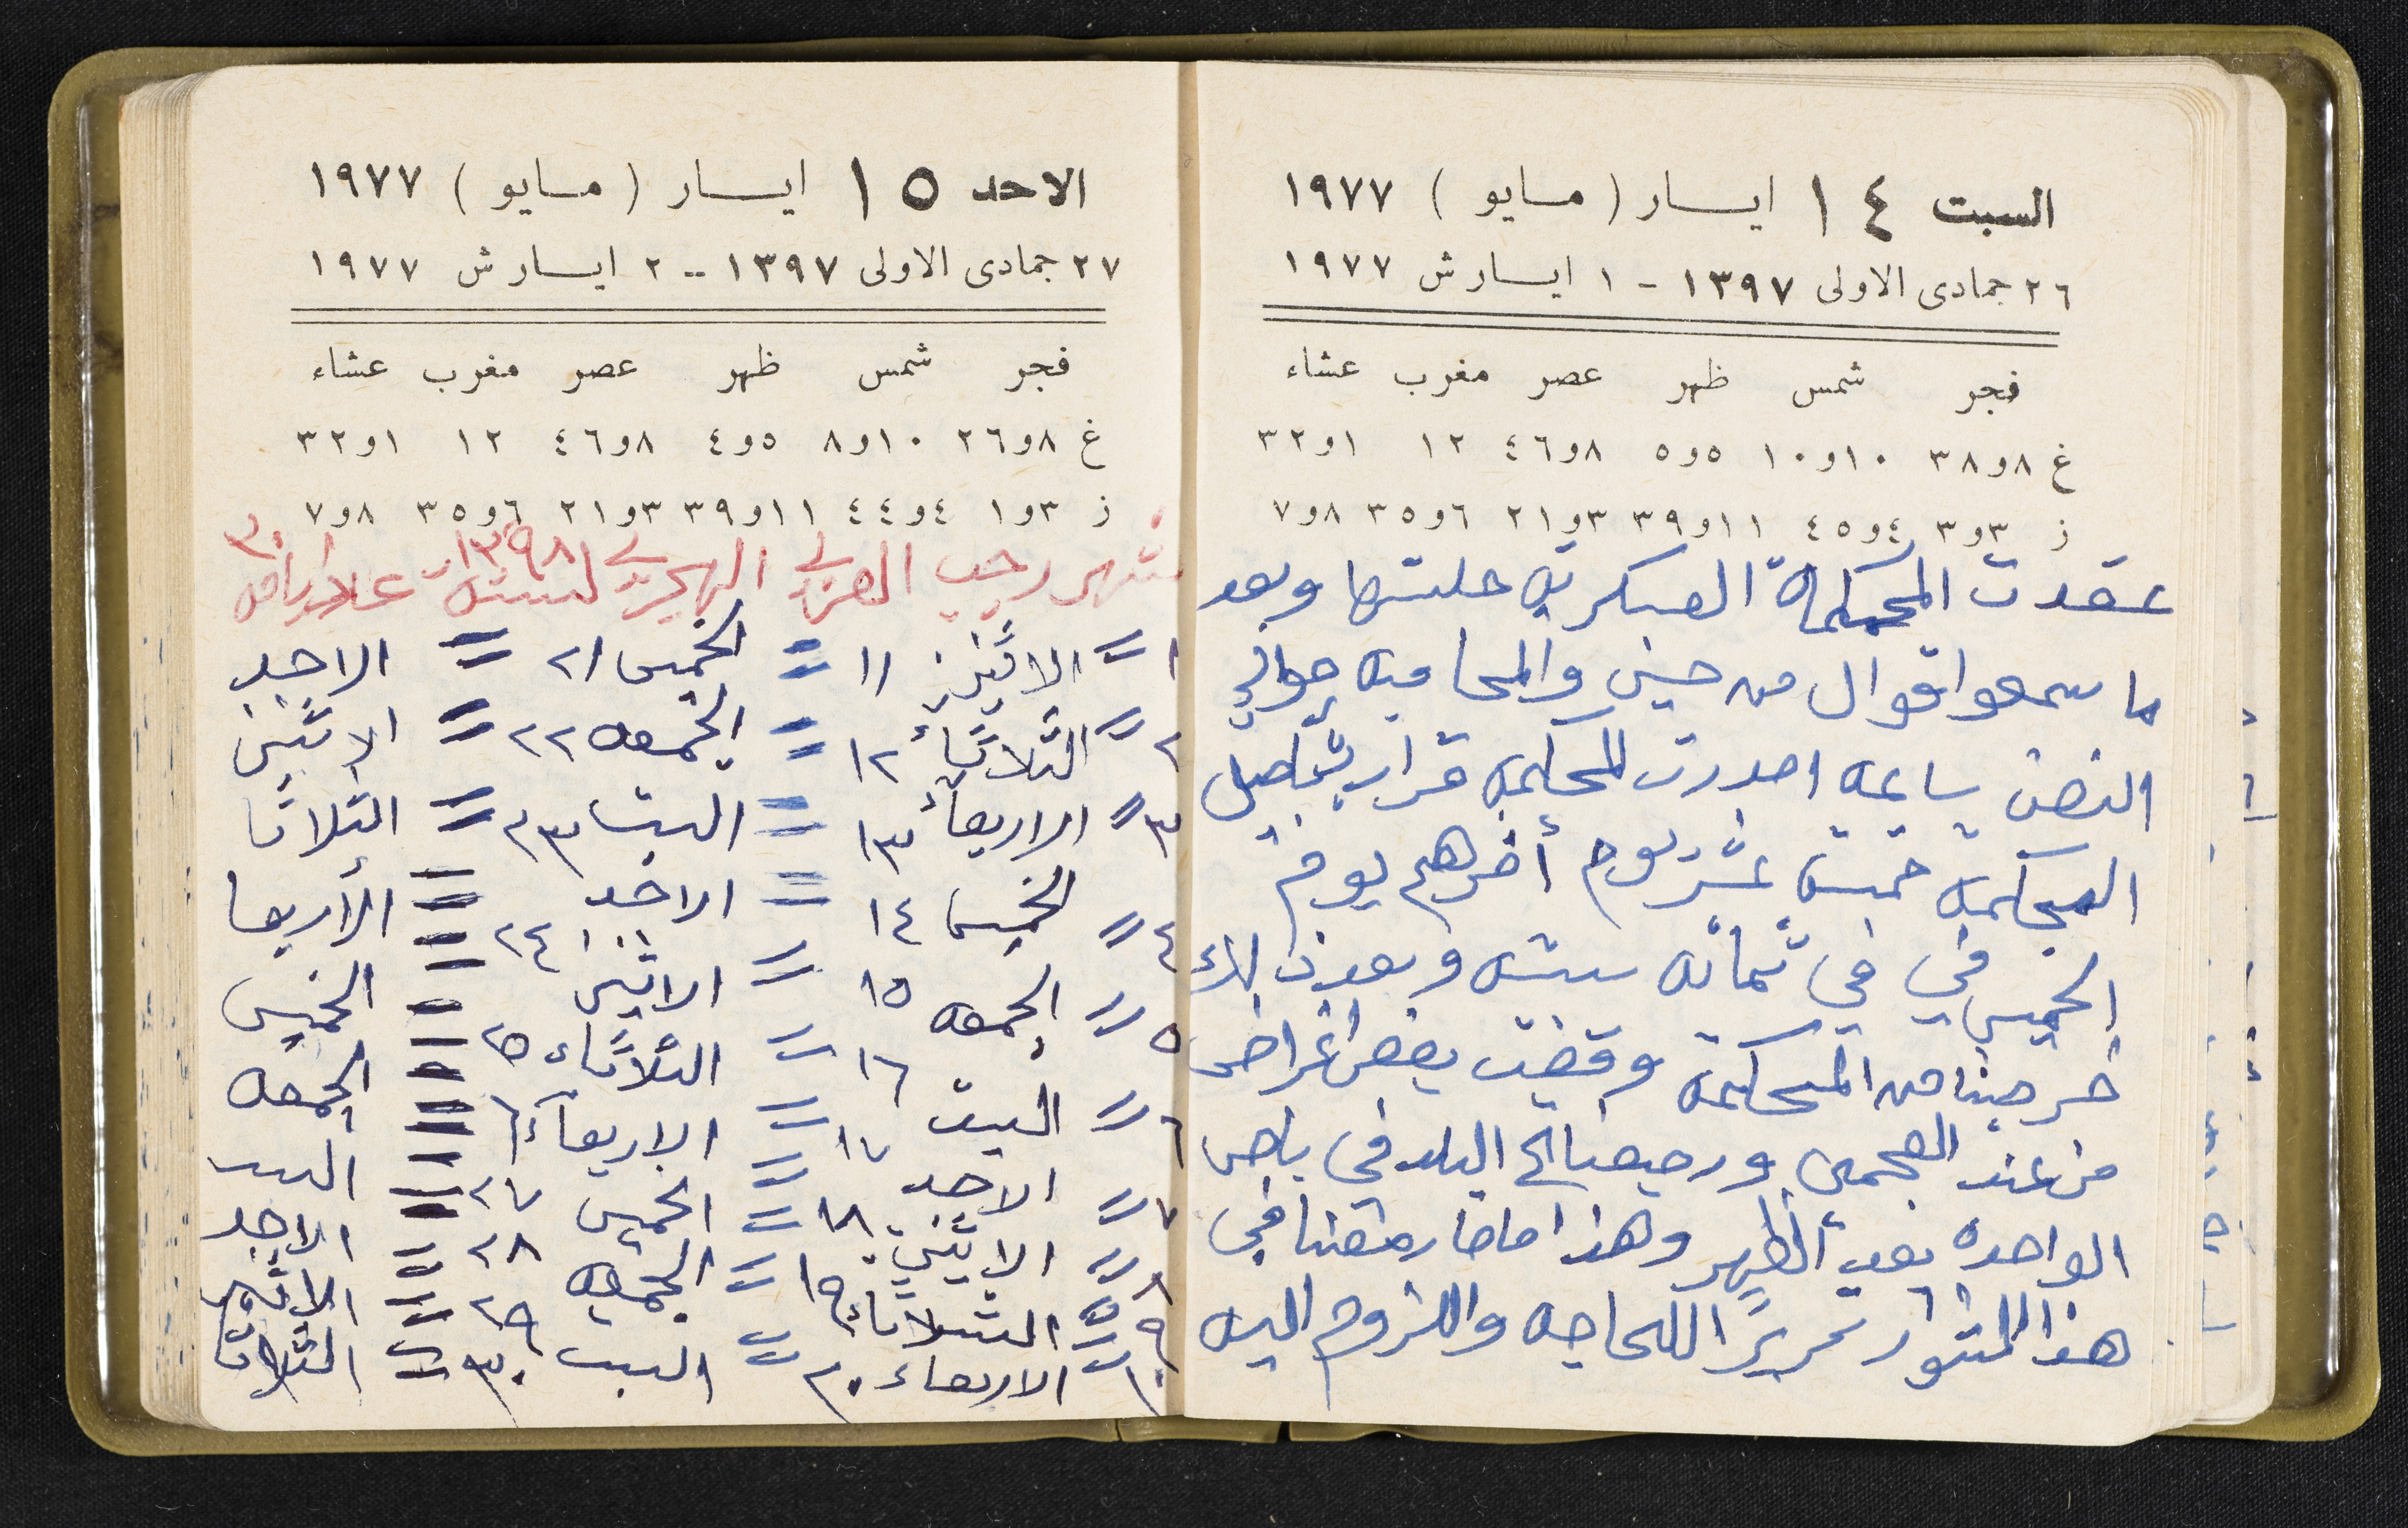 السبت ١٤ ايـسـار ( مـسايو ) ١٩٧٧
٢٦ جمادى الاولى ١٣٩٧ - ١ ايـسـار ش ١٩٧٧
فجر شمس ظهر عصر مغرب عشاء
غ ٨و٣٨ ١٠و١٠ ٥و٥ ٨و٤٦ ١٢ ١و٣٢
ز ٣و٣ ٤و٤٥ ١١و٣٩ ٣و٢١ ٦و٣٥ ٨و٧
عقدت المحكمة العسكريه جلستها وبعد
ما سمعوا اقوال من حسن والمحاميه حوالي
النصف ساعه اصدرت المحكمه قرار بتاجيل
المحكمه خمست عشر يوم أخرهم يوم
الخميس في في ثمانه سته وبعد ذلك
خرجنا من المحكمه وقضيت بعض اغراض
من عند العجمي ورجعنا الى البلد في باص
الواحده بعد الظهر وهذا ماصار معنا في
هذا المشوار تحريرًا للحاجه واللزوم اليه
الاحد ١٥ ايـسـار ( مـسايو ) ١٩٧٧
٢٧ جمادى الاولى ١٣٩٧ -- ٢ ايـسـار ش ١٩٧٧
فجر شمس ظهر عصر مغرب عشاء
غ ٨و٢٦ ١٠و٨ ٥و٤ ٨و٤٦ ١٢ ١و٣٢
ز ٣و١ ٤و٤٤ ١١و٣٩ ٣و٢١ ٦و٣٥ ٨و٧
شهر رجب العربي الهجري لسنة ١٣٩٨ ٣٠
١ = الاثنين ١١ = الخميس ٢١ = الاحد
٢ = الثلاثاء ١٢ = الجمعه ٢٢ = الاثنين
٣ = الاربعاء ١٣ = السبت ٢٣ = الثلاثا
٤ = الخميس ١٤ = الاحد ٢٤ = الأربعا
٥ = الجمعه ١٥ = الاثنين ٢٥ = الخميس
٦ = السبت ١٦ = الثلاثاء ٢٦ = الجمعه
٧ = الاحد ١٧ = الاربعاء ٢٧ = السبت
٨ = الاثنين ١٨ = الخميس ٢٨ = الاحد
٩ = الثلاثاء ١٩ = الجمعه ٢٩ = الاثنين
١٠ = الاربعاء ٢٠ = السبت ٣٠ = الثلاثا